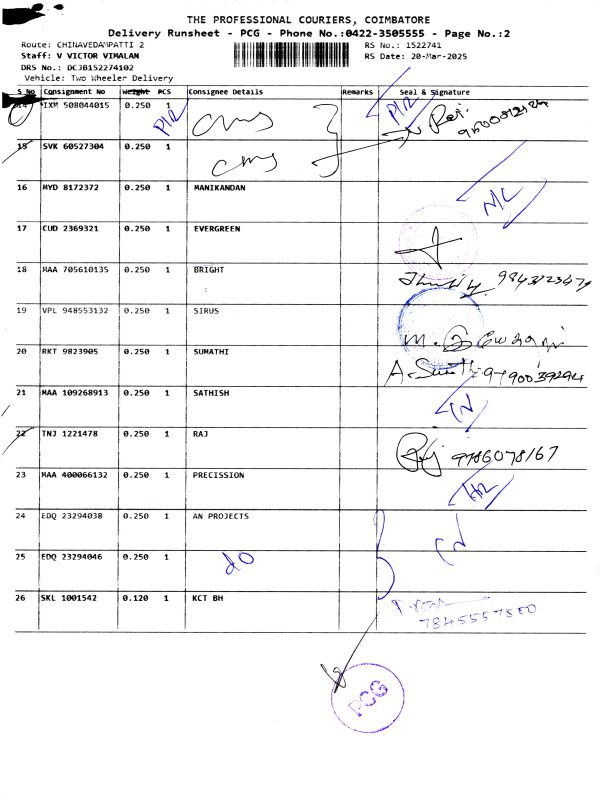 THE PROFESSIONAL COURIERS, COIMBATORE
Delivery Runsheet - PCG - Phone No.:0422-3505555 - Page No.:2
Route: CHINAVEDAMPATTI 2
RS No.: 1522741
Staff: V VICTOR VIMALAN
RS Date: 20-Mar-2025
DRS No.: DCJB152274102
Vehicle: Two Wheeler Delivery
S No Consignment No Weight PCS Consignee Details Remarks Seal & Signature
14 IXM 508044015 0.250 1
15 SVK 60527304 0.250 1
16 MYD 8172372 0.250 1 MANIKANDAN
17 CUD 2369321 0.250 1 EVERGREEN
18 MAA 705610135 0.250 1 BRIGHT
19 VPL 948553132 0.250 1 SIRUS
20 RKT 9823905 0.250 1 SUMATHI
21 MAA 109268913 0.250 1 SATHISH
22 TNJ 1221478 0.250 1 RAJ 9786078167
23 MAA 400066132 0.250 1 PRECISSION
24 EDQ 23294038 0.250 1 AN PROJECTS
25 EDQ 23294046 0.250 1 do
26 SKL 1001542 0.120 1 KCT BH
PCG